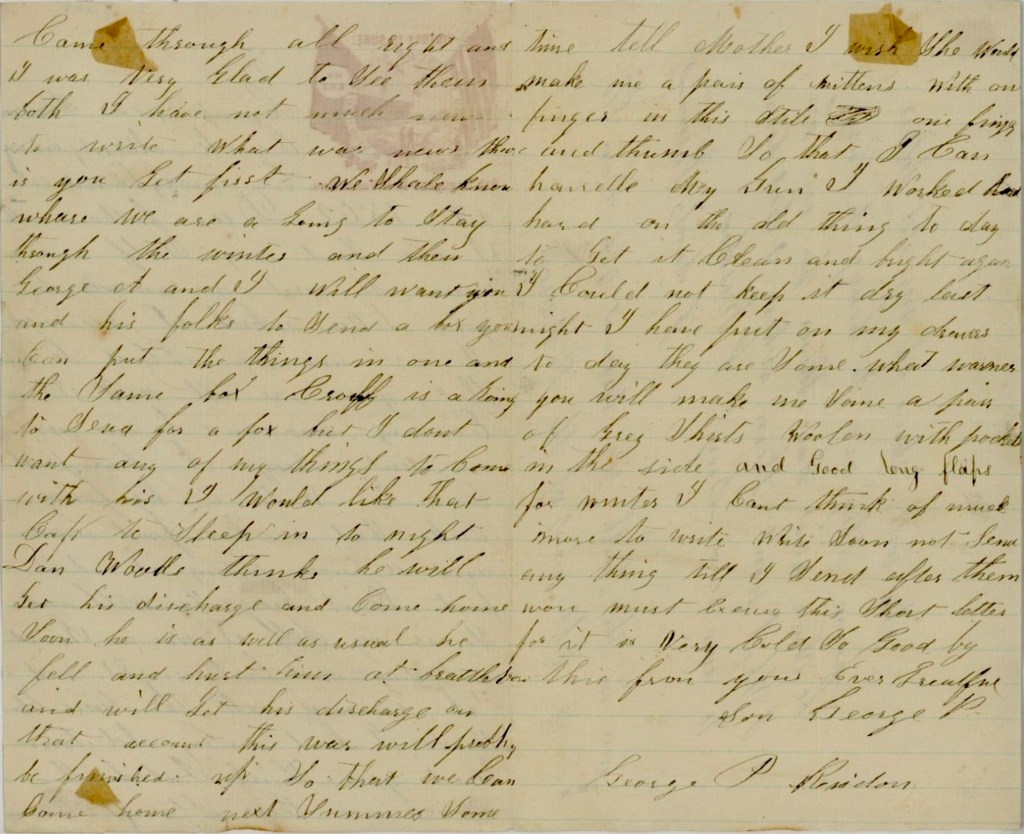 Came through all right and
I was very glad to See them
both I have not much news
to write what was news there
is you Get first We Shale know
whare We are a Going to Stay
through the winter and then
George et and I will want you
and his folks to Send a box you
Can put the things in one and
the Same box is a Going
to Send for a box but I dont
want any of my things to Come
with his I would like that
Cap to Sleep in to night
Dan Woods thinks he will
Get his discharge and Come home
Soon he is as well as usual he
fell and hurt him at
and will Get his discharge on
that account this war will probly
be finished up So that we Can
Come home next Summer Some
time tell Mother I wish She Would
make me a pair of mittens with on
finger in this Stile one finger
and thumb So that I Can
handle My Gun I worked
hard on the old thing to day
to Get it Clean and bright again
I Could not keep it dry last
night I have put on my drawrs
to day they are Some what warmer
you will make me Some a pair
of Grey Shirts Woolen with pockets
in the side and Good long flaps
for winter I Cant think of much
more to write Write Soon not Send
any thing till I Send after them
you must Excuse this Short letter
for it is Very Cold So Good by
this from your Ever
Son George P.
George P